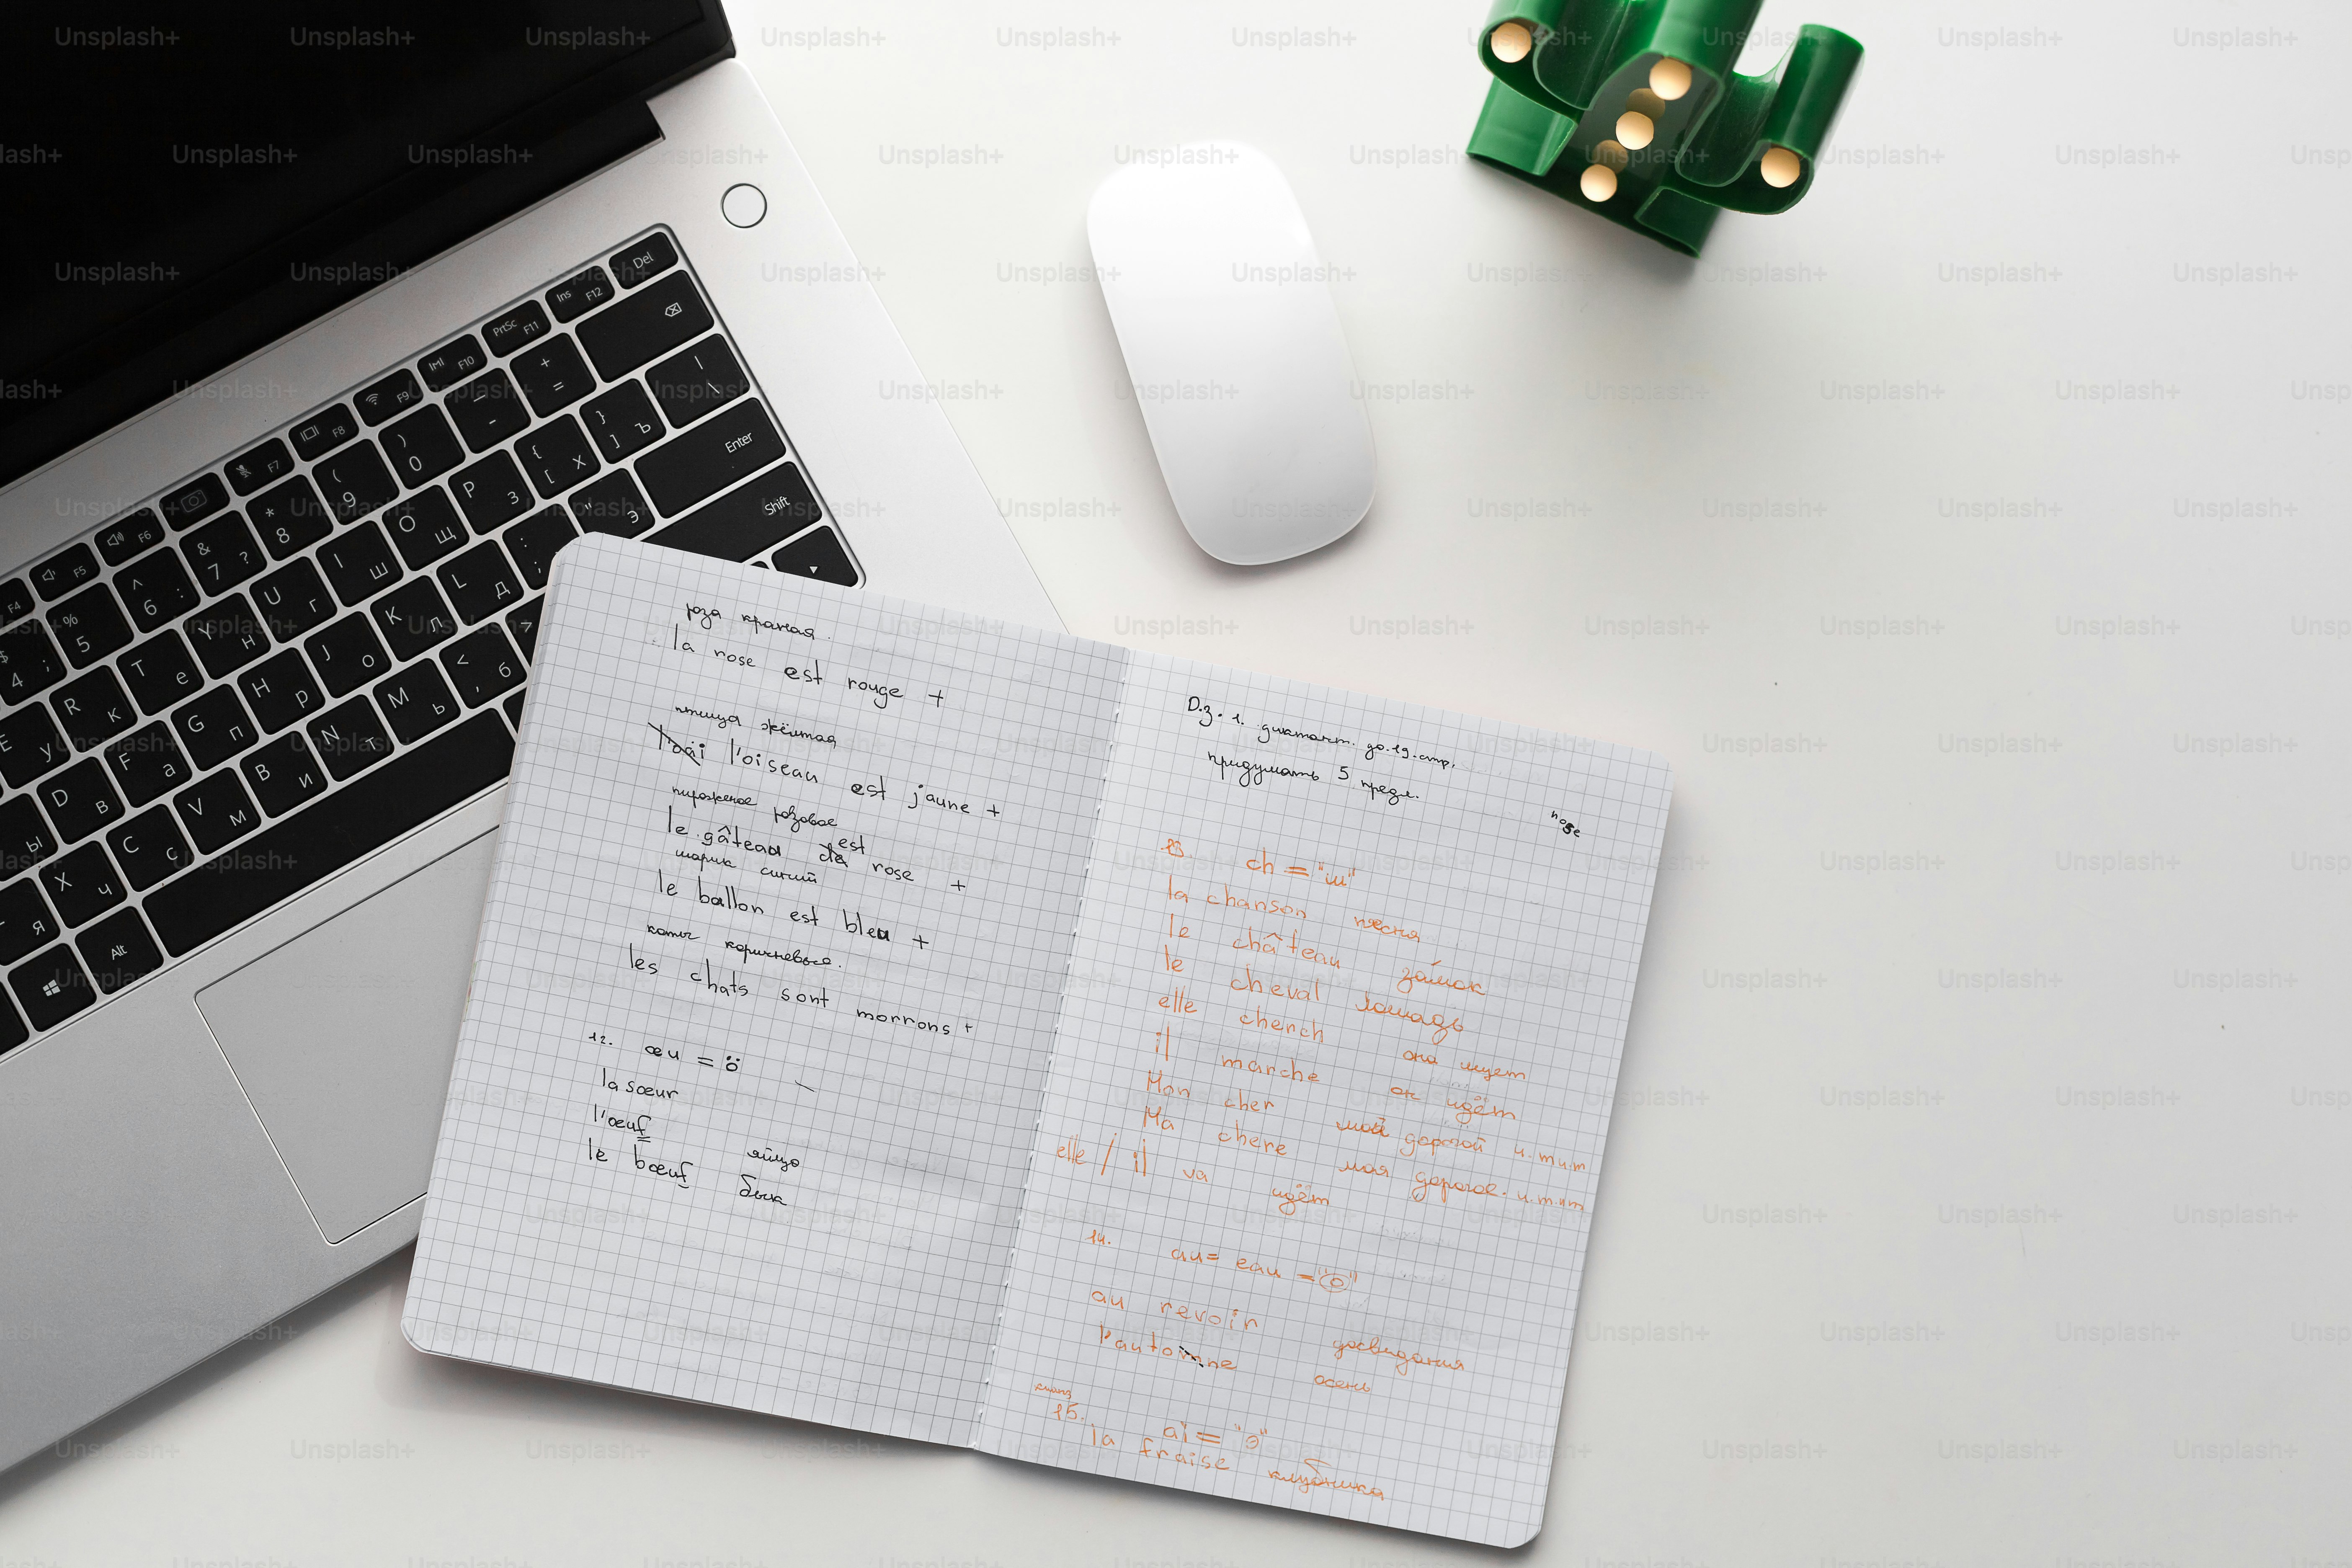 Del
Ins F12
PrtSc F11
F10
F9
F8
F7
F6
F5
F4
+ =
_ -
) 0
( 9
* 8
& 7 ?
^ 6 :
% 5
$ 4 ;
| \
} ] Ъ
{ [ Х
P З
O Щ
I Ш
U Г
Y Н
T Е
R К
E У
Enter
" Э
: ;
L Д
K Л
J О
H Р
G П
F А
D В
Ы
Shift
> 
< , Б
M Ь
N Т
B И
V М
C С
X Ч
Я
Alt
роза краная.
la rose est rouge +
птица жёлтая
l'oai l'oiseau est jaune +
пирожное розовое
est
le gâteau de rose +
шарик синий
le ballon est bleu +
коты коричневые.
les chats sont morrons +
12. œu = ö
la sœur
l'œuf яйцо
le bœuf бык
D.з. 1. диктант. до.19.стр.
придумать 5 предл.
nose
13. ch = "ш"
la chanson песня
le château замок
le cheval лошадь
elle cherch она ищет
il marche он идёт
Mon cher мой дорогой и.т.и.т
Ma chere мая дорогое. и.т.и.т
elle / il va идёт
14. au = eau = "о"
au revoir досвидания
l'automne осень
15. ai = "э"
la fraise клубника